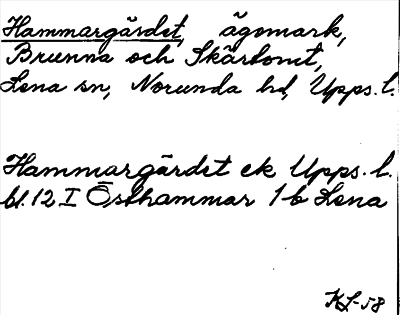 Hammargärdet, ägomark,
Brunna och Skärtomt,
Lena sn, Norunda hd, Upps. l.
Hammargärdet ek Upps. l.
bl. 12 I Östhammar 1 b Lena
KL-58